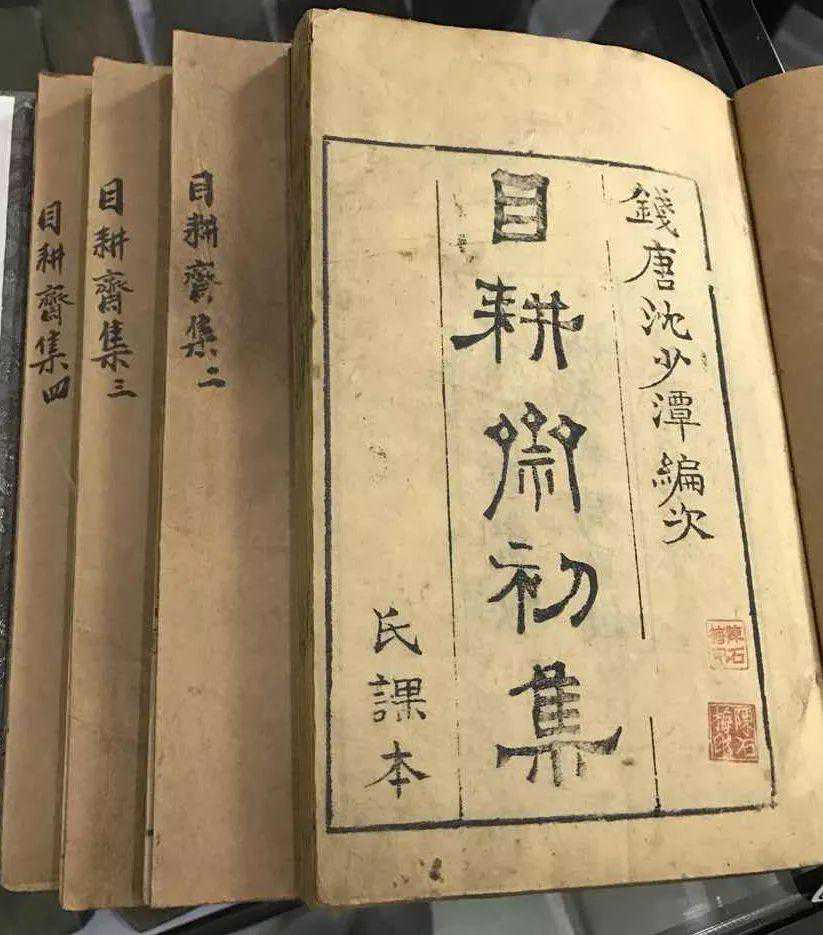 錢唐沈少潭編次
目耕齋初集
氏課本
目耕齋集二
目耕齋集三
目耕齋集四